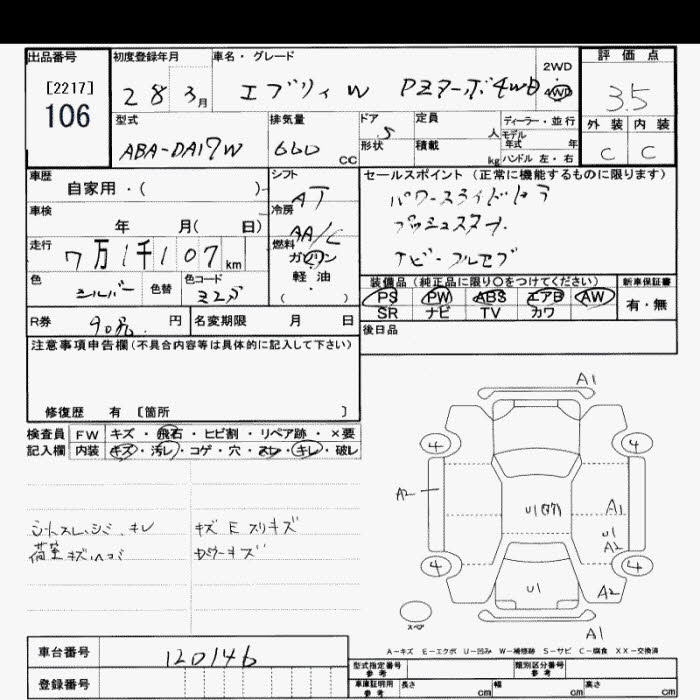 出品番号 初度登録年月 車名・グレード 評価点
[2217] 2WD
106 28 3月 エブリィW PZターボ4WD 4WD 3.5
型式 排気量 ドア 定員 ディーラー・並行 外装 内装
ABA-DA17W 660 CC 5 人 モデル年式 年 C C
形状 積載 kg ハンドル 左・右
車歴 シフト セールスポイント(正常に機能するものに限ります)
自家用・( ) AT パワースライドドア
車検 冷房 プッシュスタート
年 月( 日) AA/C
走行 燃料 ナビ フルセグ
7万1千107km ガソリン
色 色替 色コード 軽油 装備品(純正品に限り〇をつけてください) 新車保証書
シルバー Z2S ( ) PS PW ABS エアB AW 有・無
SR ナビ TV カワ
R券 円 名変期限 月 日 後日品
注意事項申告欄(不具合内容等は具体的に記入して下さい)
修復歴 有 〔箇所 〕
検査員 FW キズ・飛石・ヒビ割・リペア跡・×要
記入欄 内装 キズ・汚レ・コゲ・穴・スレ・キレ・破レ
シートスレ、シミ、キレ キズ E スリキズ
荷室キズ、ヘコミ
A1
4 4
A2 U1 A1
U1
A2
4 4
U1 A2
スペア A1
A-キズ E-エクボ U-凹み W-補修跡 S-サビ C-腐食 XX-交換済
車台番号 120146 型式指定番号 参考 類別区分番号 参考
登録番号 車庫証明用 参考 長さ cm 幅 cm 高さ cm